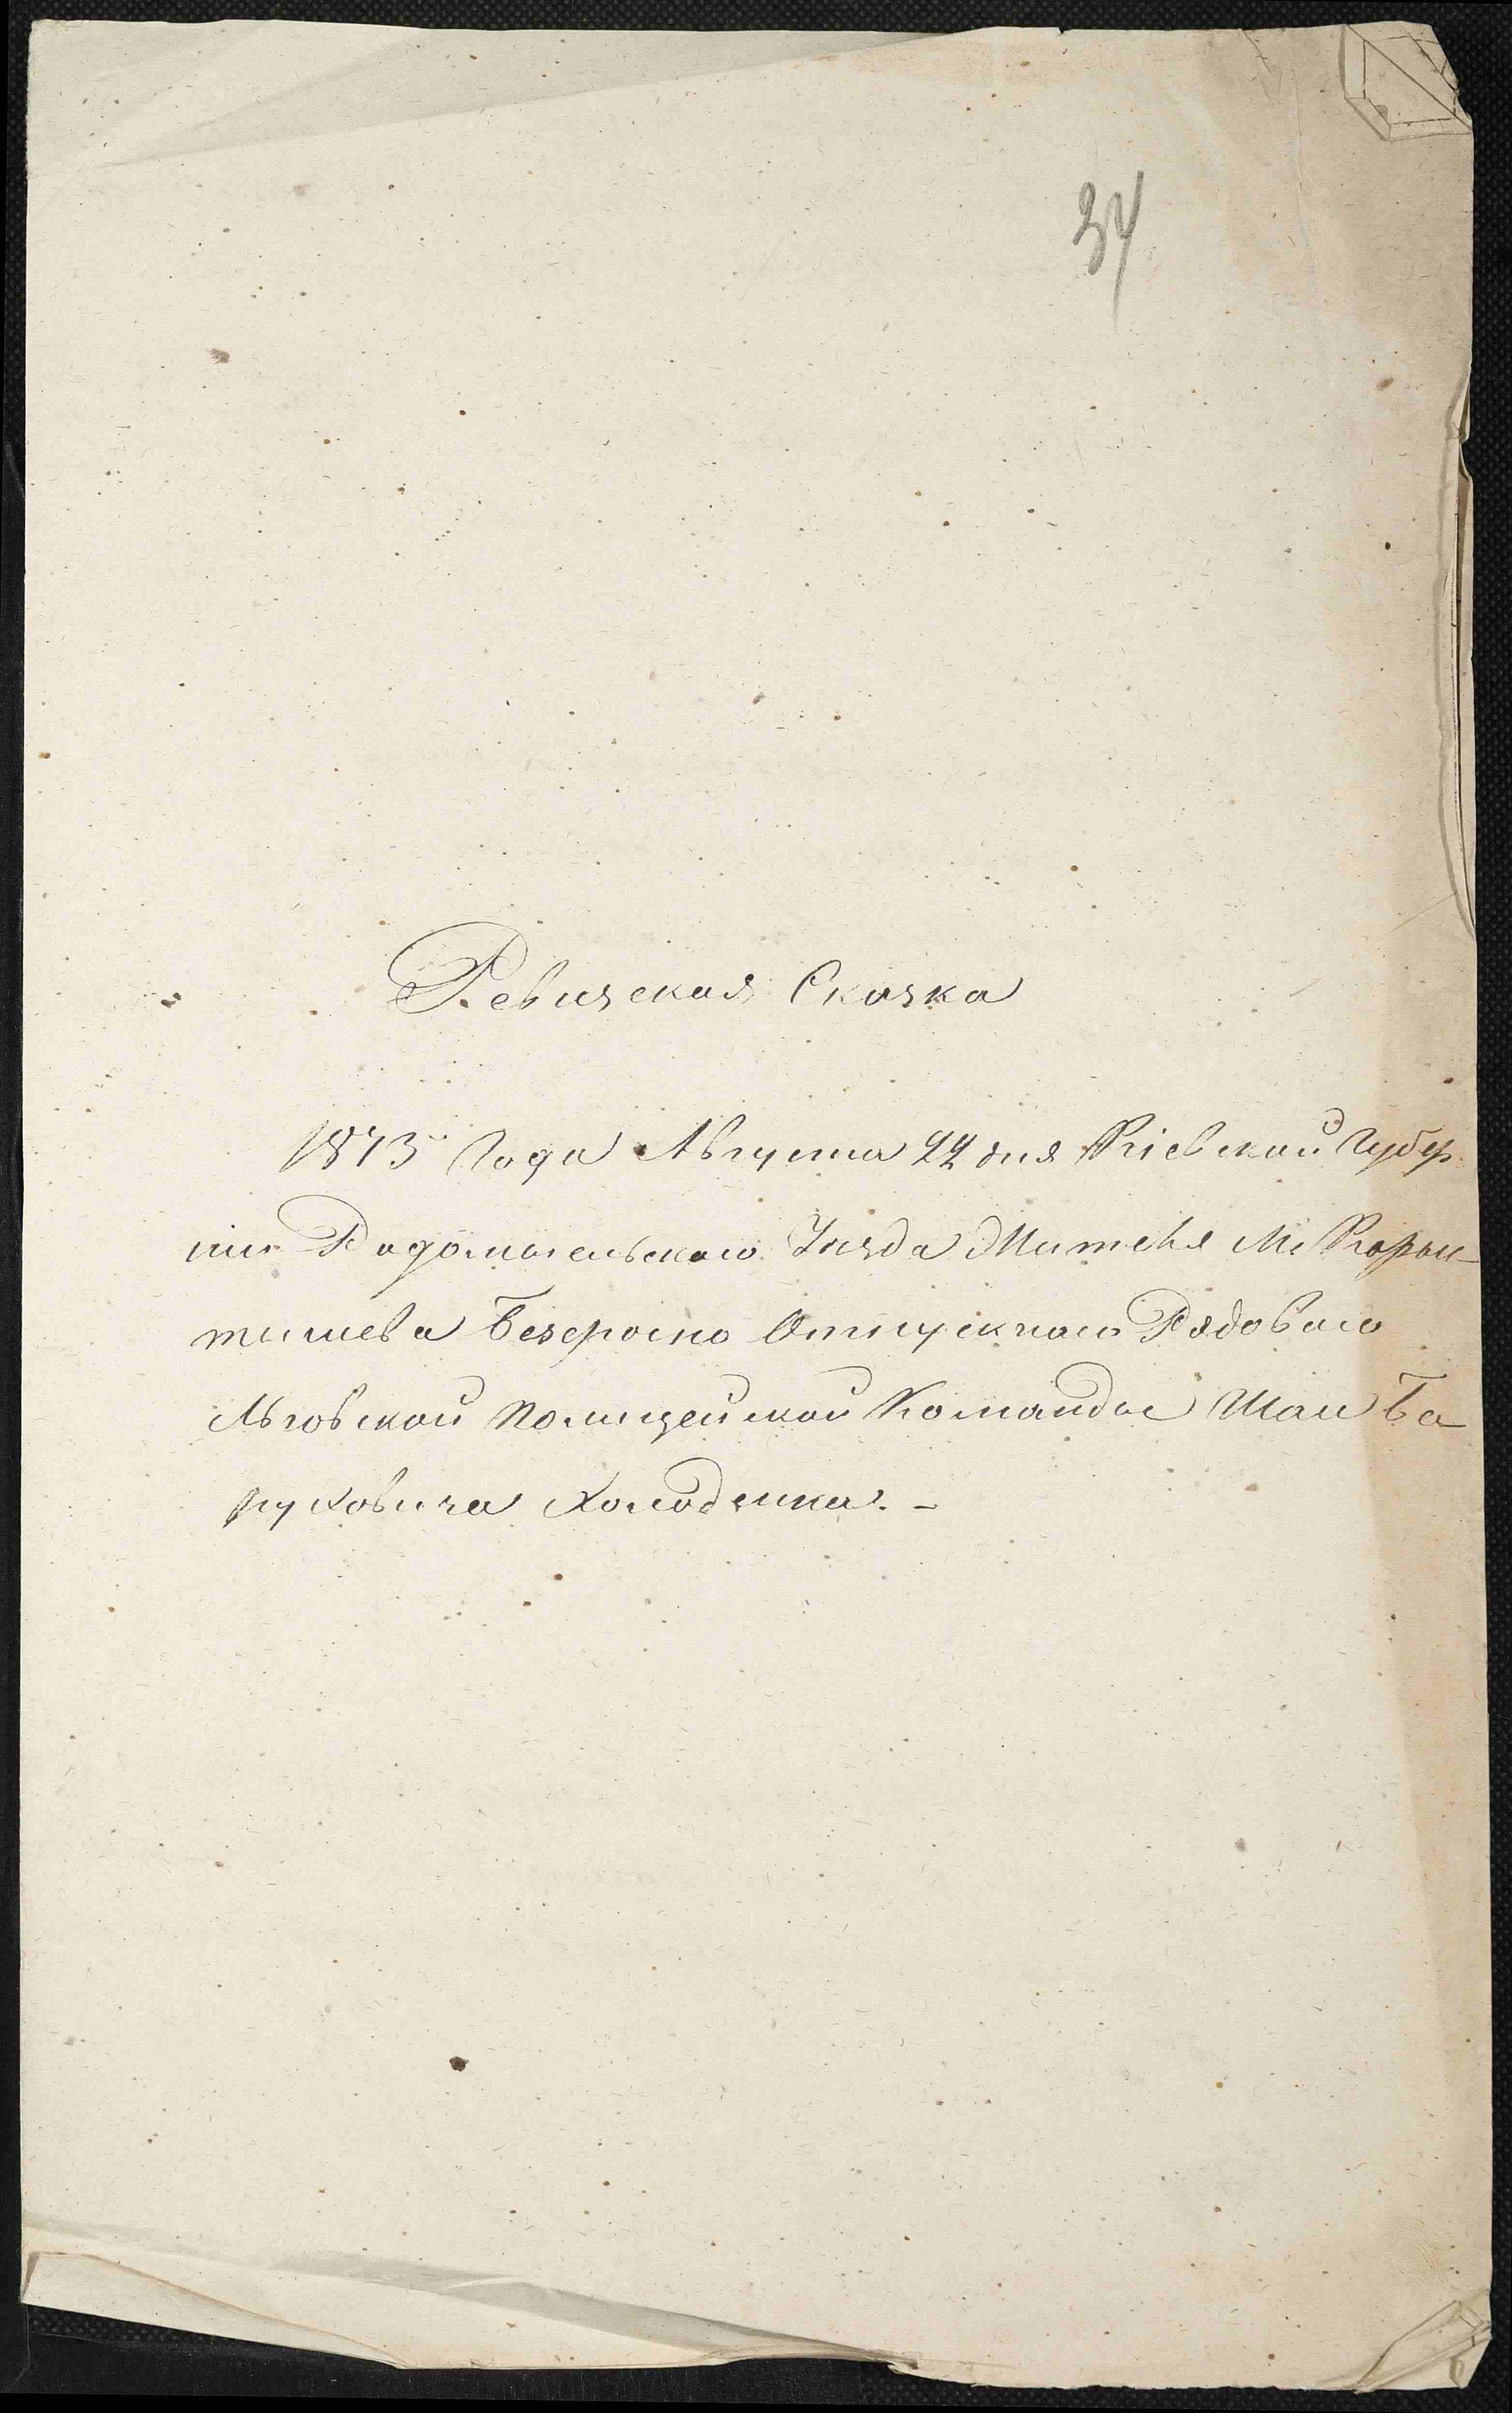 34
Ревизская Сказка
1873 Года Августа 22 дня Кіевской Губер
ніи Радомысльского Уѣзда Мителя М. Корос-
тишева Безсрочно Отпускного Рядового
Льговской Полицейской Команды Шаи Ба-
руховича Холоденка. -